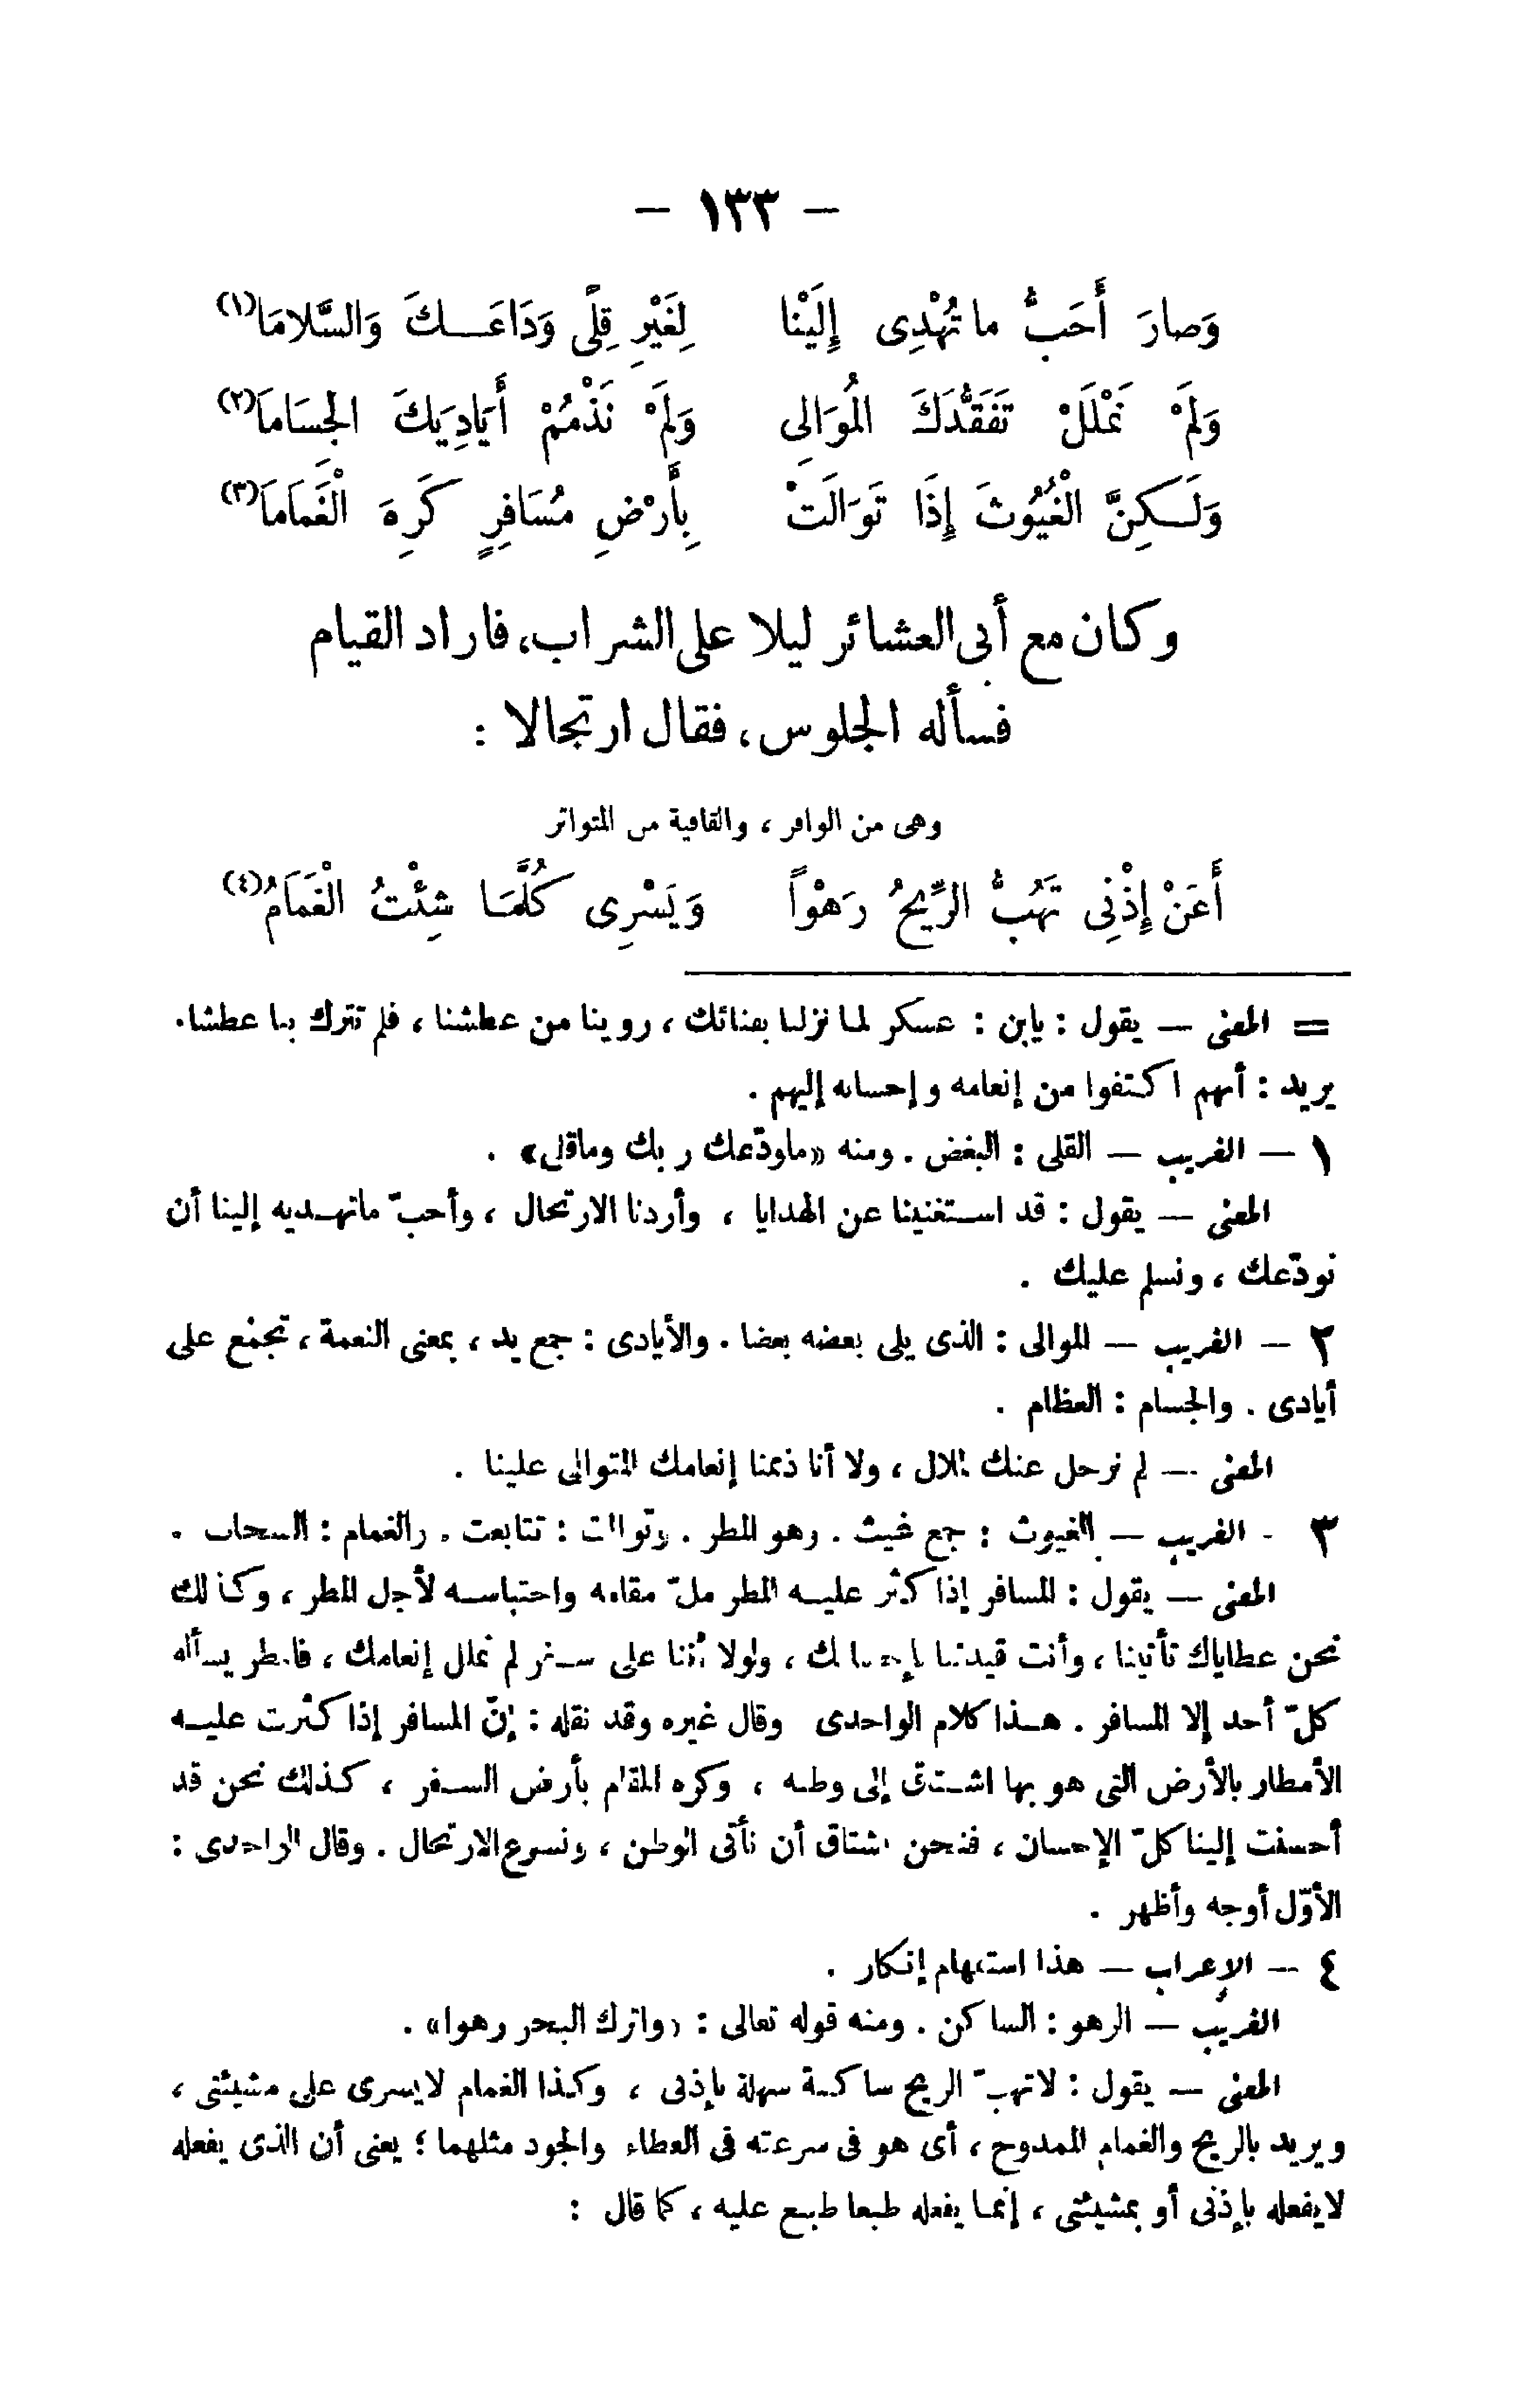 — ١٣٣ —
وَصارَ أَحَبُّ ما تُهْدِى إِلَيْنا لِغَيْرِ قِلًى وَدَاعَـكَ وَالسَّلامَا(١)
وَلَمْ نَمْلَلْ تَفَقُّدَكَ الْمُوَالِى وَلَمْ نَذْمُمْ أَيَادِيَكَ الْجِسَامَا(٢)
وَلَـكِنَّ الْغُيُوثَ إِذَا تَوَالَتْ بِأَرْضِ مُسَافِرٍ كَرِهَ الْغَمَامَا(٣)
وكان مع أبى العشائر ليلا على الشراب، فاراد القيام
فسأله الجلوس، فقال ارتجالا :
وهى من الوافر ، والقافية من المتواتر
أَعَنْ إِذْنِى تَهُبُّ الرِّيحُ رَهْواً وَيَسْرِى كُلَّمَا شِئْتُ الْغَمَامُ(٤)
= المعنى — يقول : يابن : عسكر لما نزلنا بفنائك ، روينا من عطشنا ، فلم تترك بنا عطشا.
يريد : أنهم اكتفوا من إنعامه وإحسانه إليهم .
١ — الغريب — القلى : البغض . ومنه «ماودّعك ربك وماقلى» .
المعنى — يقول : قد استغنينا عن الهدايا ، وأردنا الارتحال ، وأحبّ ماتهديه إلينا أن
نودّعك ، ونسلم عليك .
٢ — الغريب — الموالى : الذى يلى بعضه بعضا . والأيادى : جمع يد ، بمعنى النعمة ، تجمع على
أيادى . والجسام : العظام .
المعنى — لم نرحل عنك لملال ، ولا أنا ذممنا إنعامك المتوالى علينا .
٣ - الغريب — الغيوث : جمع غيث . وهو المطر . وتوالت : تتابعت . والغمام : السحاب .
المعنى — يقول : المسافر إذا كثر عليه المطر ملّ مقامه واحتباسه لأجل المطر ، وكذلك
نحن عطاياك تأتينا ، وأنت قيدتنا بإحسانك ، ولولا أننا على سفر لم نملل إنعامك ، فالمطر يسأله
كلّ أحد إلا المسافر . هذا كلام الواحدى وقال غيره وقد نقله : إنّ المسافر إذا كثرت عليه
الأمطار بالأرض التى هو بها اشتاق إلى وطنه ، وكره المقام بأرض السفر ، كذلك نحن قد
أحسنت إلينا كلّ الإحسان ، فنحن نشتاق أن نأتى الوطن ، ونسرع الارتحال . وقال الواحدى :
الأوّل أوجه وأظهر .
٤ — الإعراب — هذا استفهام إنكار .
الغريب — الرهو : الساكن . ومنه قوله تعالى : «واترك البحر رهوا» .
المعنى — يقول : لاتهبّ الريح ساكنة سهلة بإذنى ، وكذا الغمام لايسرى على مشيئتى ،
ويريد بالريح والغمام الممدوح ، أى هو فى سرعته فى العطاء والجود مثلهما ؛ يعنى أن الذى يفعله
لايفعله بإذنى أو بمشيئتى ، إنما يفعله طبعا طبع عليه ، كما قال :